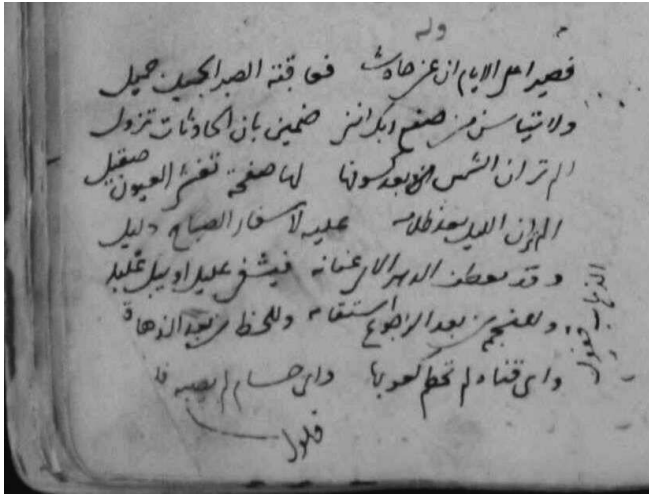 وله
فصبرا على الايام ان عن حادث فعاقبة الصبر الجميل جميل
ولا تيأسن من صنع ربك انني ضمين بان الحادثات تزول
الم تر ان الشمس بعد كسوفها لها صفحة تغشى العيون صقيل
الم تر ان الليل بعد ظلامه عليه لاسفار الصباح دليل
وقد يعطف الدهر الابي عنانه فيشفى عليل او يبل غليل
وللنجم من بعد الرجوع استقامة وللحظ من بعد الذهاب
الذهاب قفول
واي قناة لم تحطم كعوبها واي حسام لم يصبه
فلول